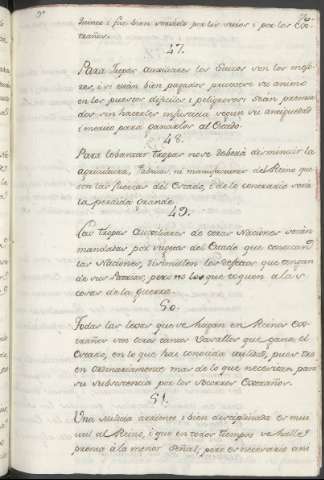 bien servido por los suios i por los Ex-
traños.
47.
Para Tropas Auxiliares los Suizos son los mejo-
res, i si están bien pagados su animo
en los puestos dificiles i peligrosos: serán premia-
dos sin hacerles injusticia segun su antiguedad
i merito para ganarlos al Estado.
48.
Para lebantar Tropas no se deberá desminuir la
agricultura, Fabricas, ni manufacturas del Reino que
son las fuerzas del Estado, i de lo contrario sería
la perdida grande.
49.
Las Tropas Auxiliares de otras Naciones serán
mandadas por sugetos del Estado que conozcan
las Naciones, disimulen los defectos que tengan
de sus Patrias, pero no los que toquen a las
cosas de la guerra.
50.
Todas las levas que se hagan en Reinos Ex-
traños son otros tantos Vasallos que gana el
Estado, en lo que hai conocida utilidad, pues tra-
en ordinariamente mas de lo que necesitan para
su subsistencia por los socorros Extraños.
51.
Una milicia arreglada i bien disciplinada es mui
util al Reino, i que en todos tiempos se halle
pronta à la menor señal, pero es necesario ani